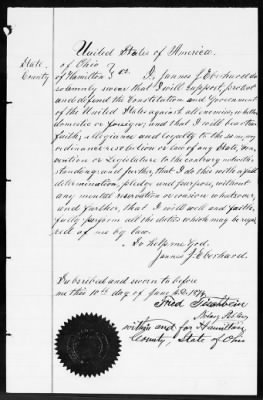 United States of America.
State of Ohio
County of Hamilton } ss. I, James J. Eberhard do
solemnly swear that I will support, protect
and defend the Constitution and Government
of the United States against all enemies, whether
domestic or foreign; and that I will bear true
faith, allegiance and loyalty to the same, any
ordinance, resolution or law of any State, Con-
vention or Legislature to the contrary notwith-
standing; and further, that I do this with a full
determination, pledge and purpose, without
any mental reservation or evasion whatsoever,
and further, that I will well and faith-
fully perform all the duties which may be requi-
red of me by law.
So help me God.
James J. Eberhard.
Subscribed and sworn to before
me this 10th day of June A.D.
Fred
Notary Public
within and for Hamilton
County, State of Ohio